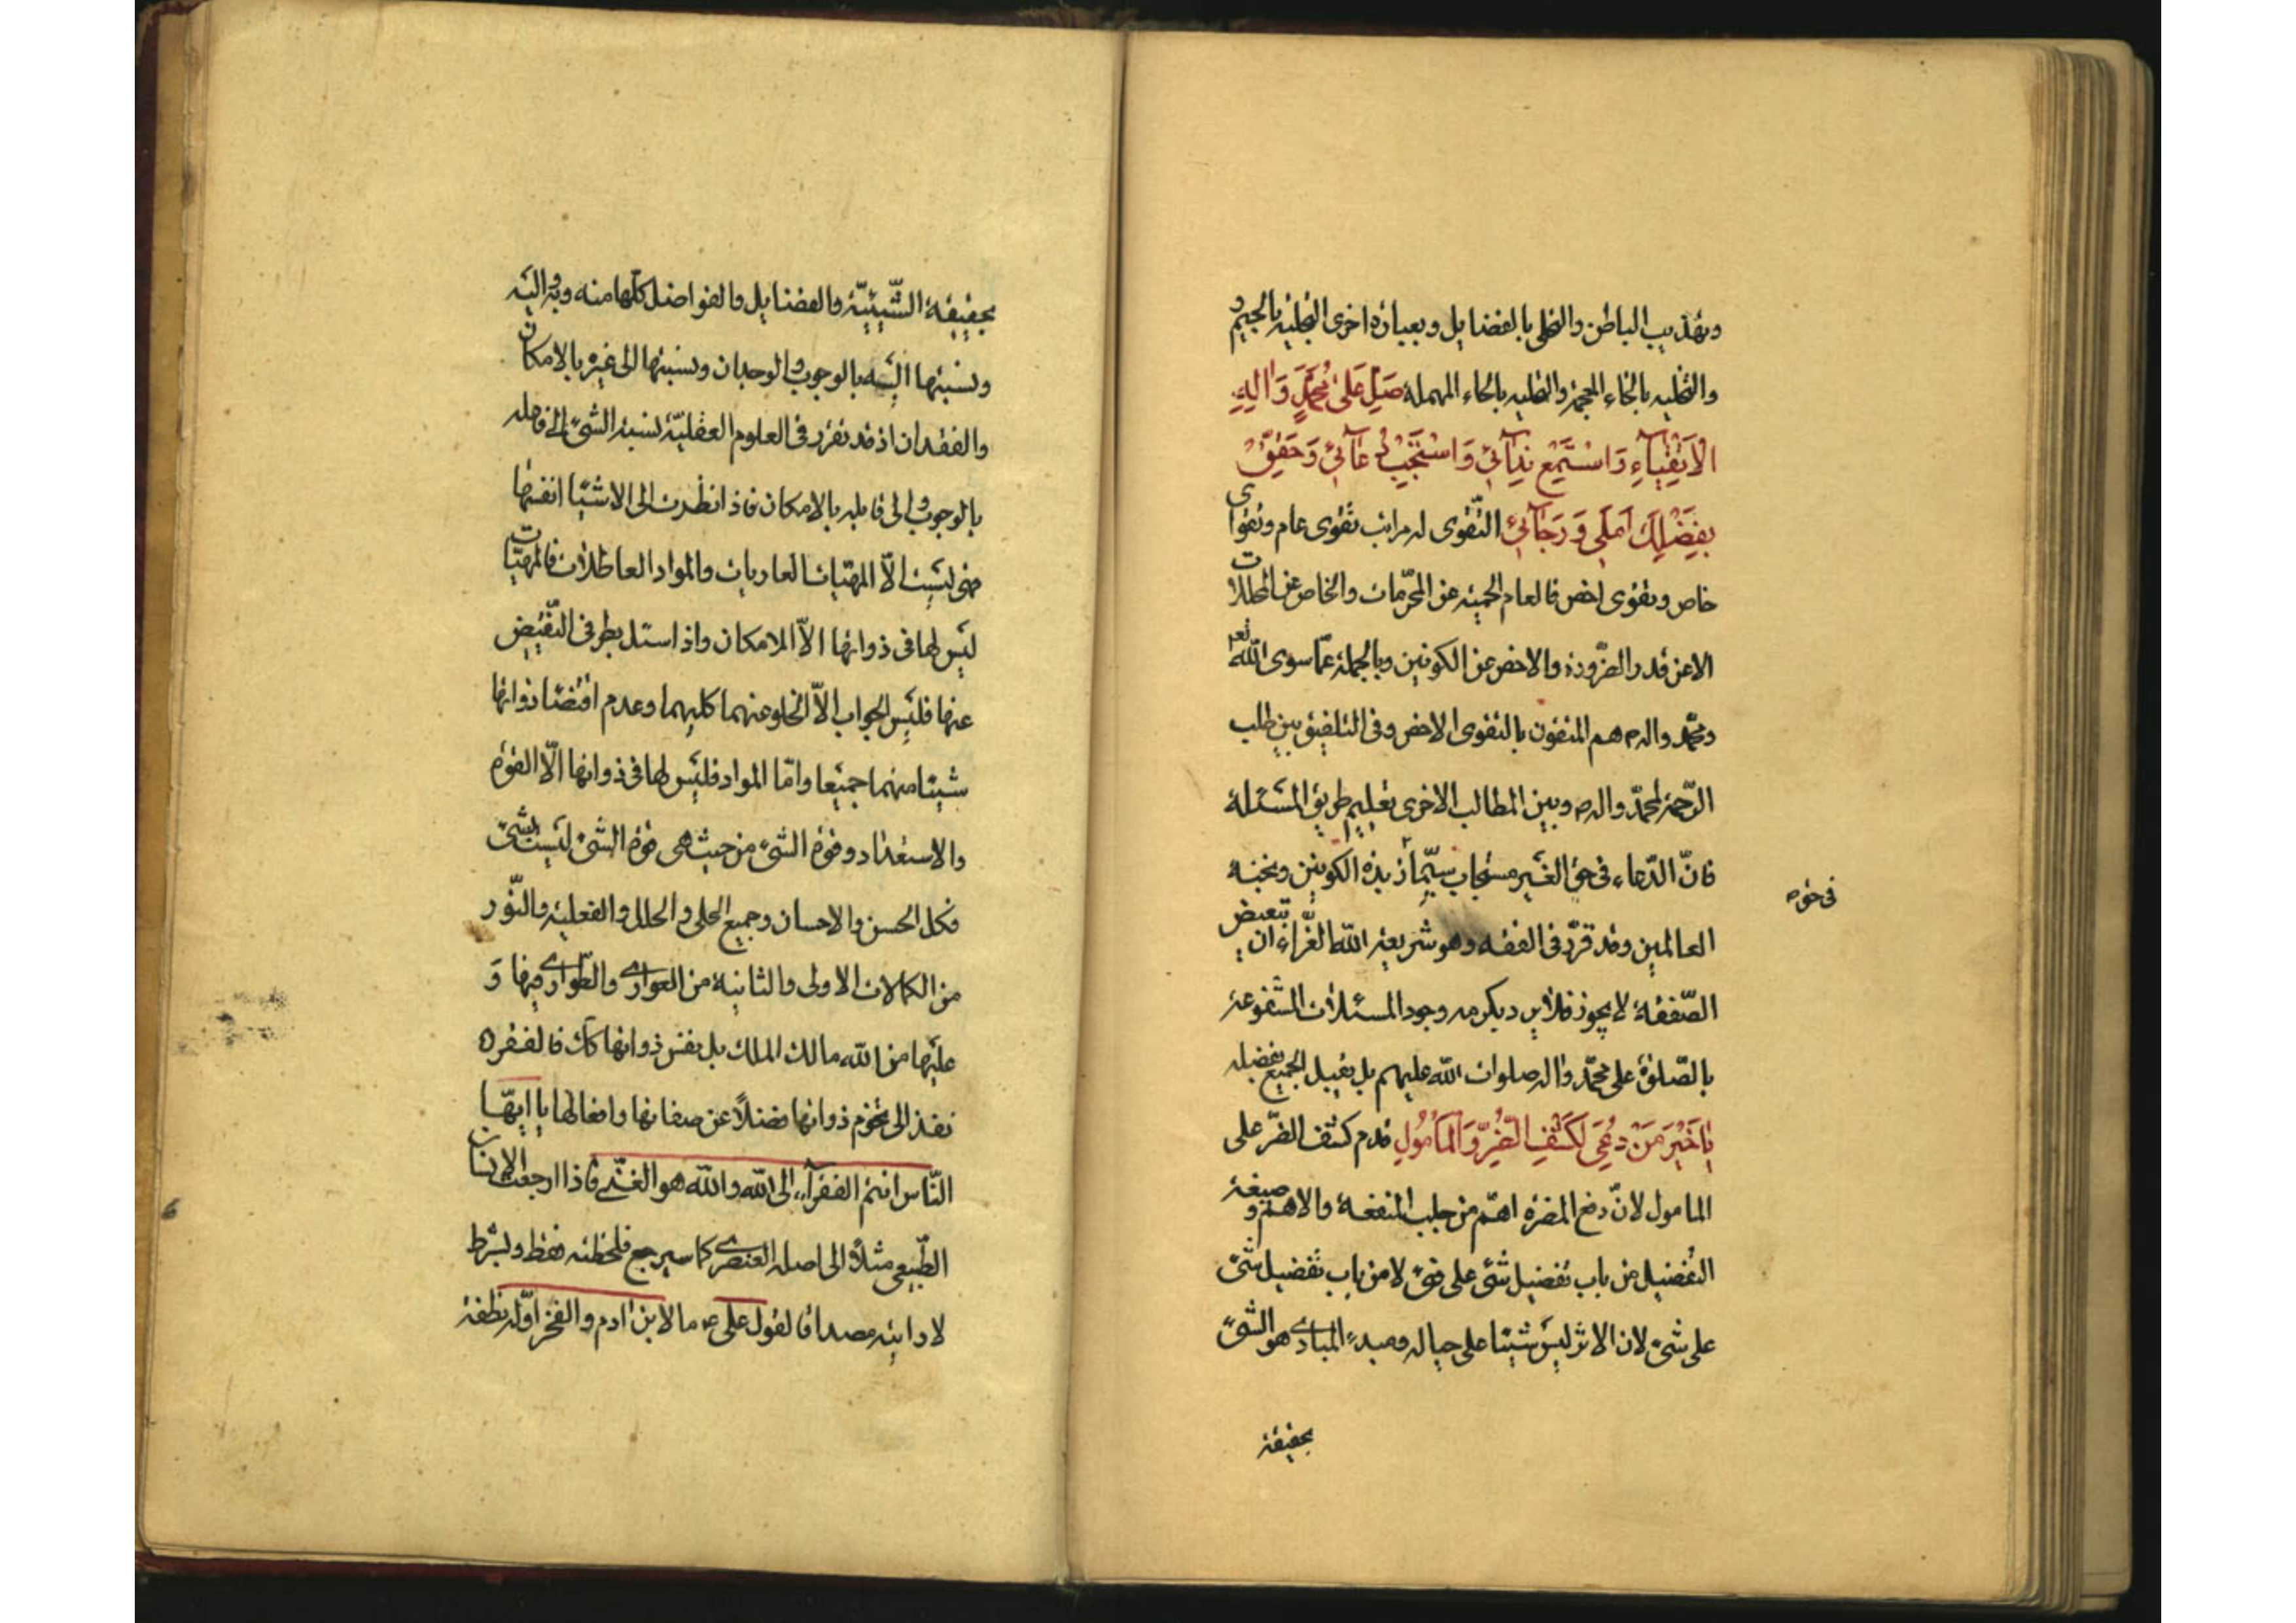 وتهذيب الباطن والتحلى بالفضايل وبعبارة اخرى التجليه بالجيم و
والتخليه بالخاء المعجمة والتحليه بالحاء المهملة صَلِّ عَلىٰ مُحَمَّدٍ وَالِهِ
الاَتْقِيٰاءِ وَاسْتَمِعْ نِدٰائي وَاسْتَجِبْ دُعٰائي وَحَقِّقْ
بِفَضْلِكَ اَمَلي وَرَجٰائي التّقوى له مراتب تقوى عام وتقوى
خاص وتقوى اخص فالعام الحمية عن المحرّمات والخاص عن المحللات
الا عن قدر الضّرورة والاخص عن الكونين وبالجملة عمّا سوى الله تعـ
ومحمّد واله ص هم المتقون بالتقوى الاخص وفى التلفيق بين طلب
الرّحمة لمحمّد واله ص وبين المطالب الاخرى تعليم طريق المسئلة
فانّ الدّعاء فى حق الغير مستجاب سيّما زبدة الكونين ونخبة
فى حقه
العالمين وقد قرّر فى الفقه وهو شريعة الله الغرّاء ان تبعيض
الصّفقة لا يجوز فلا يرد يكرمه وجود المسئلات المشفوعة
بالصّلوة على محمّد واله صلوات الله عليهم بل يقبل الجميع بفضله
يٰا خَيْرَ مَنْ دُعِيَ لِكَشْفِ الضُّرِّ وَالمَأمُولِ قدم كشف الضّر على
المامول لانّ دفع المضرة اهمّ من جلب المنفعة والاهم وصيغة
التفضيل من باب تفضيل شئ على فئ لا من باب تفضيل شئ
على شئ لان الاثر ليس شيئا على حياله ومبدء المبادى هو الشئ
بحقيقة
بحقيقة الشّيئيّة والفضايل والفواضل كلّها منه وبه واليه
ونسبتها اليه بالوجوب والوجدان ونسبتها الى غيره بالامكان
والفقدان اذ قد تقرّر فى العلوم العقليّة نسبة الشئ الى فاعله
بالوجوب والى قابله بالامكان فاذا نظرت الى الاشيا انفسها
فهى ليست الاّ المهيّات العاريات والمواد العاطلات فالمهيّات
ليس لها فى ذواتها الاّ الامكان واذا سئل بطرفى النّقيض
عنها فليس الجواب الاّ الخلو عنهما كليهما وعدم اقتضا ذواتها
شيئا منهما جميعا وامّا المواد فليس لها فى ذواتها الاّ القوة
والاستعداد وقوة الشئ من حيث هى قوة الشئ ليست بشئ
فكل الحسن والاحسان وجميع الحلى والحلل والفعلية والنّور
من الكمالات الاولى والثانية من العوارى والطّوارى فيها و
عليها من الله مالك الملك بل نفس ذواتها كك فالفقر
نفذ الى تخوم ذواتها فضلاً عن صفاتها وافعالها يا ايهّا
النّاس انتم الفقرآء الى الله والله هو الغنّى فاذا ارجعت الانسان
الطّبيعى مثلاً الى اصله العنصرى كما سيرجع فلحظته فقط وبشرط
لا رايته مصداقا لقول على ع ما لابن ادم والفخر اوّله نطفة